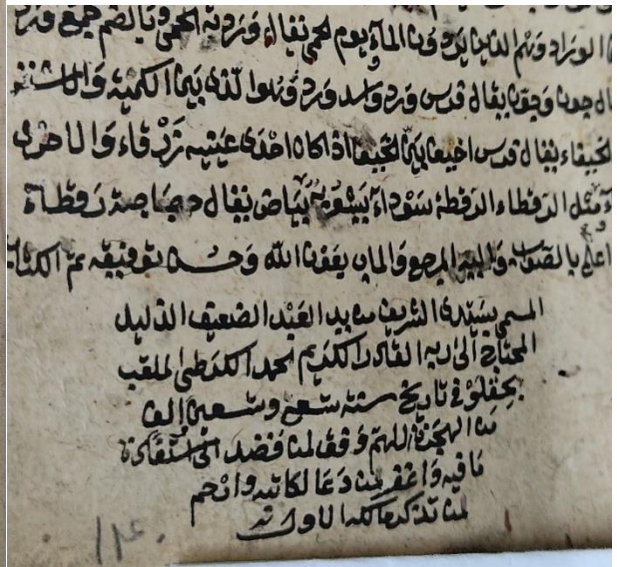 الوراد وهم الذين يردون الماء يوم الحمى يقال ورد ته الحمى وبالضم جمع ورد
جون وجون يقال فرس ورد واسد ورد وهو الذى بين الكميت والاشقر
الخيفاء يقال فرس اخيف بين الخيف اذا كان احدى عينيه زرقاء والاخرى
مثل الرقطاء الرقطة سوداء يشوبه بياض يقال دجاجة رقطاء
اعلم بالصواب واليه المرجع والماب بعون الله وحسن توفيقه تم الكتاب
المسمى بسيدى الشريف من يد العبد الضعيف الذليل
المحتاج الى ربه القادر الكريم احمد الملقب
فى تاريخ سنة سبع وسبعين الف
من الهجرة اللهم وفق لمن قصد الى استفادة
ما فيه واغفر لمن دعا لكاتبه وارحم
لمن